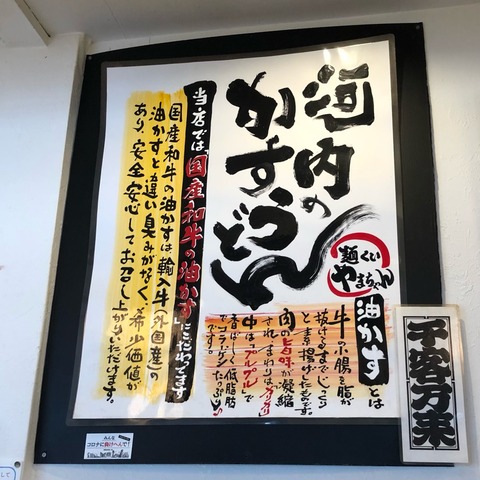 河内の
かすうどん
麺くい
やまちゃん
油かすとは
牛の小腸を脂が
抜けきるまでじっくり
とまま揚げたものです。
肉の旨味が凝縮
され、まわりはカリカリ
中はプルプルで
香ばしく低脂肪
でコラーゲンたっぷり
です。
当店では「国産和牛の油かす」にこだわってます
国産和牛の油かすは輸入牛(外国産)の
油かすと違い臭みがなく、希少価値が
あり、安全安心してお召し上がりいただけます。
千客万来
みんな
コロナに負けへんで!